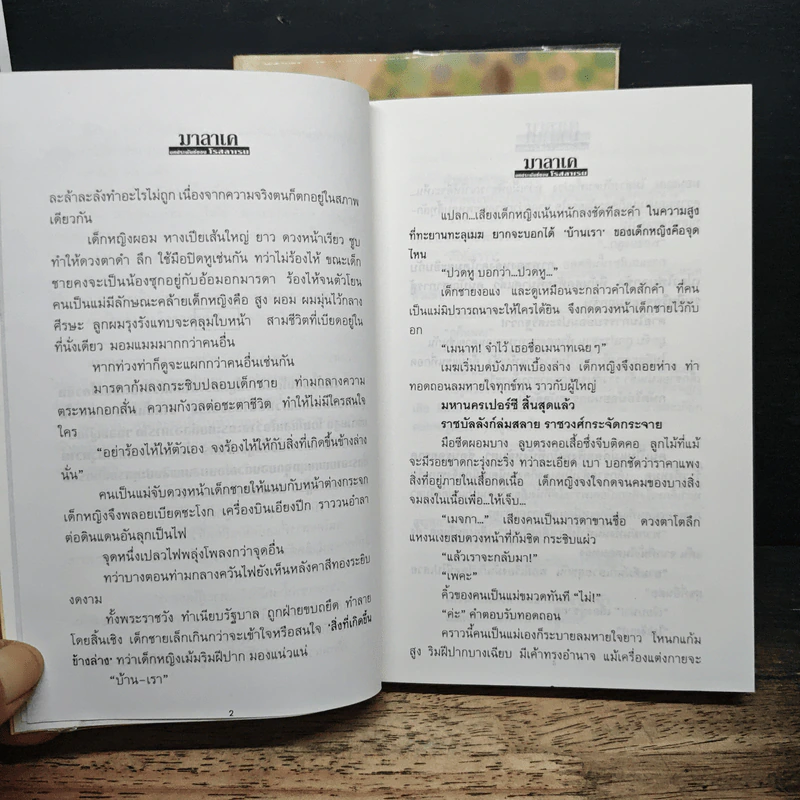 มาลาเค
บทประพันธ์ของ โรสลาเรน
ละล้าละลังทำอะไรไม่ถูก เนื่องจากความจริงตนก็ตกอยู่ในสภาพ
เดียวกัน
เด็กหญิงผอม หางเปียเส้นใหญ่ ยาว ดวงหน้าเรียว ซูบ
ทำให้ดวงตาดำ ลึก ใช้มือปิดหูเช่นกัน ทว่าไม่ร้องไห้ ขณะเด็ก
ชายคงจะเป็นน้องซุกอยู่กับอ้อมอกมารดา ร้องไห้จนตัวโยน
คนเป็นแม่มีลักษณะคล้ายเด็กหญิงคือ สูง ผอม ผมมุ่นไว้กลาง
ศีรษะ ลูกผมรุงรังแทบจะคลุมใบหน้า สามชีวิตที่เบียดอยู่ใน
ที่นั่งเดียว มอมแมมมากกว่าคนอื่น
หากท่วงท่าก็ดูจะแผกกว่าคนอื่นเช่นกัน
มารดาก้มลงกระซิบปลอบเด็กชาย ท่ามกลางความ
ตระหนกอกสั่น ความกังวลต่อชะตาชีวิต ทำให้ไม่มีใครสนใจ
ใคร
“อย่าร้องไห้ให้ตัวเอง จงร้องไห้ให้กับสิ่งที่เกิดขึ้นข้างล่าง
นั่น”
คนเป็นแม่จับดวงหน้าเด็กชายให้แนบกับหน้าต่างกระจก
เด็กหญิงจึงพลอยเบียดชะโงก เครื่องบินเอียงปีก ราววนอำลา
ต่อดินแดนอันลุกเป็นไฟ
จุดหนึ่งเปลวไฟพลุ่งโพลงกว่าจุดอื่น
ทว่าบางตอนท่ามกลางควันไฟยังเห็นหลังคาสีทองระยิบ
งดงาม
ทั้งพระราชวัง ทำเนียบรัฐบาล ถูกฝ่ายขบถยึด ทำลาย
โดยสิ้นเชิง เด็กชายเล็กเกินกว่าจะเข้าใจหรือสนใจ ‘สิ่งที่เกิดขึ้น
ข้างล่าง’ ทว่าเด็กหญิงเม้มริมฝีปาก มองแน่วแน่
“บ้าน-เรา”
2
มาลาเค
บทประพันธ์ของ โรสลาเรน
แปลก...เสียงเด็กหญิงเน้นหนักลงชัดทีละคำ ในความสูง
ที่ทะยานทะลุเมฆ ยากจะบอกได้ ‘บ้านเรา’ ของเด็กหญิงคือจุด
ไหน
“ปวดหู บอกว่า...ปวดหู...”
เด็กชายงอแง และดูเหมือนจะกล่าวคำใดสักคำ ที่คน
เป็นแม่มิปรารถนาจะให้ใครได้ยิน จึงกดดวงหน้าเด็กชายไว้กับ
อก
“เมนาท! จำไว้ เธอชื่อเมนาทเฉยๆ”
เมฆเริ่มบดบังภาพเบื้องล่าง เด็กหญิงจึงถอยห่าง ท่า
ทอดถอนลมหายใจทุกข์ทน ราวกับผู้ใหญ่
มหานครเปอร์ซี สิ้นสุดแล้ว
ราชบัลลังก์ล่มสลาย ราชวงศ์กระจัดกระจาย
มือซีดผอมบาง ลูบตรงคอเสื้อซึ่งจีบติดคอ ลูกไม้ที่แม้
จะมีรอยขาดกะรุ่งกะริ่ง ทว่าละเอียด เบา บอกชัดว่าราคาแพง
สิ่งที่อยู่ภายในเสื้อกดเนื้อ เด็กหญิงจงใจกดจนคมของบางสิ่ง
จมลงในเนื้อเพื่อ...ให้เจ็บ...
“เมจกา...” เสียงคนเป็นมารดาขานชื่อ ดวงตาโตลึก
แหงนเงยสบดวงหน้าที่ก้มชิด กระซิบแผ่ว
“แล้วเราจะกลับมา!”
“เพคะ”
คิ้วของคนเป็นแม่ขมวดทันที “ไม่!”
“ค่ะ” คำตอบรับทอดถอน
คราวนี้คนเป็นแม่เองก็ระบายลมหายใจยาว โหนกแก้ม
สูง ริมฝีปากบางเฉียบ มีเค้าทรงอำนาจ แม้เครื่องแต่งกายจะ